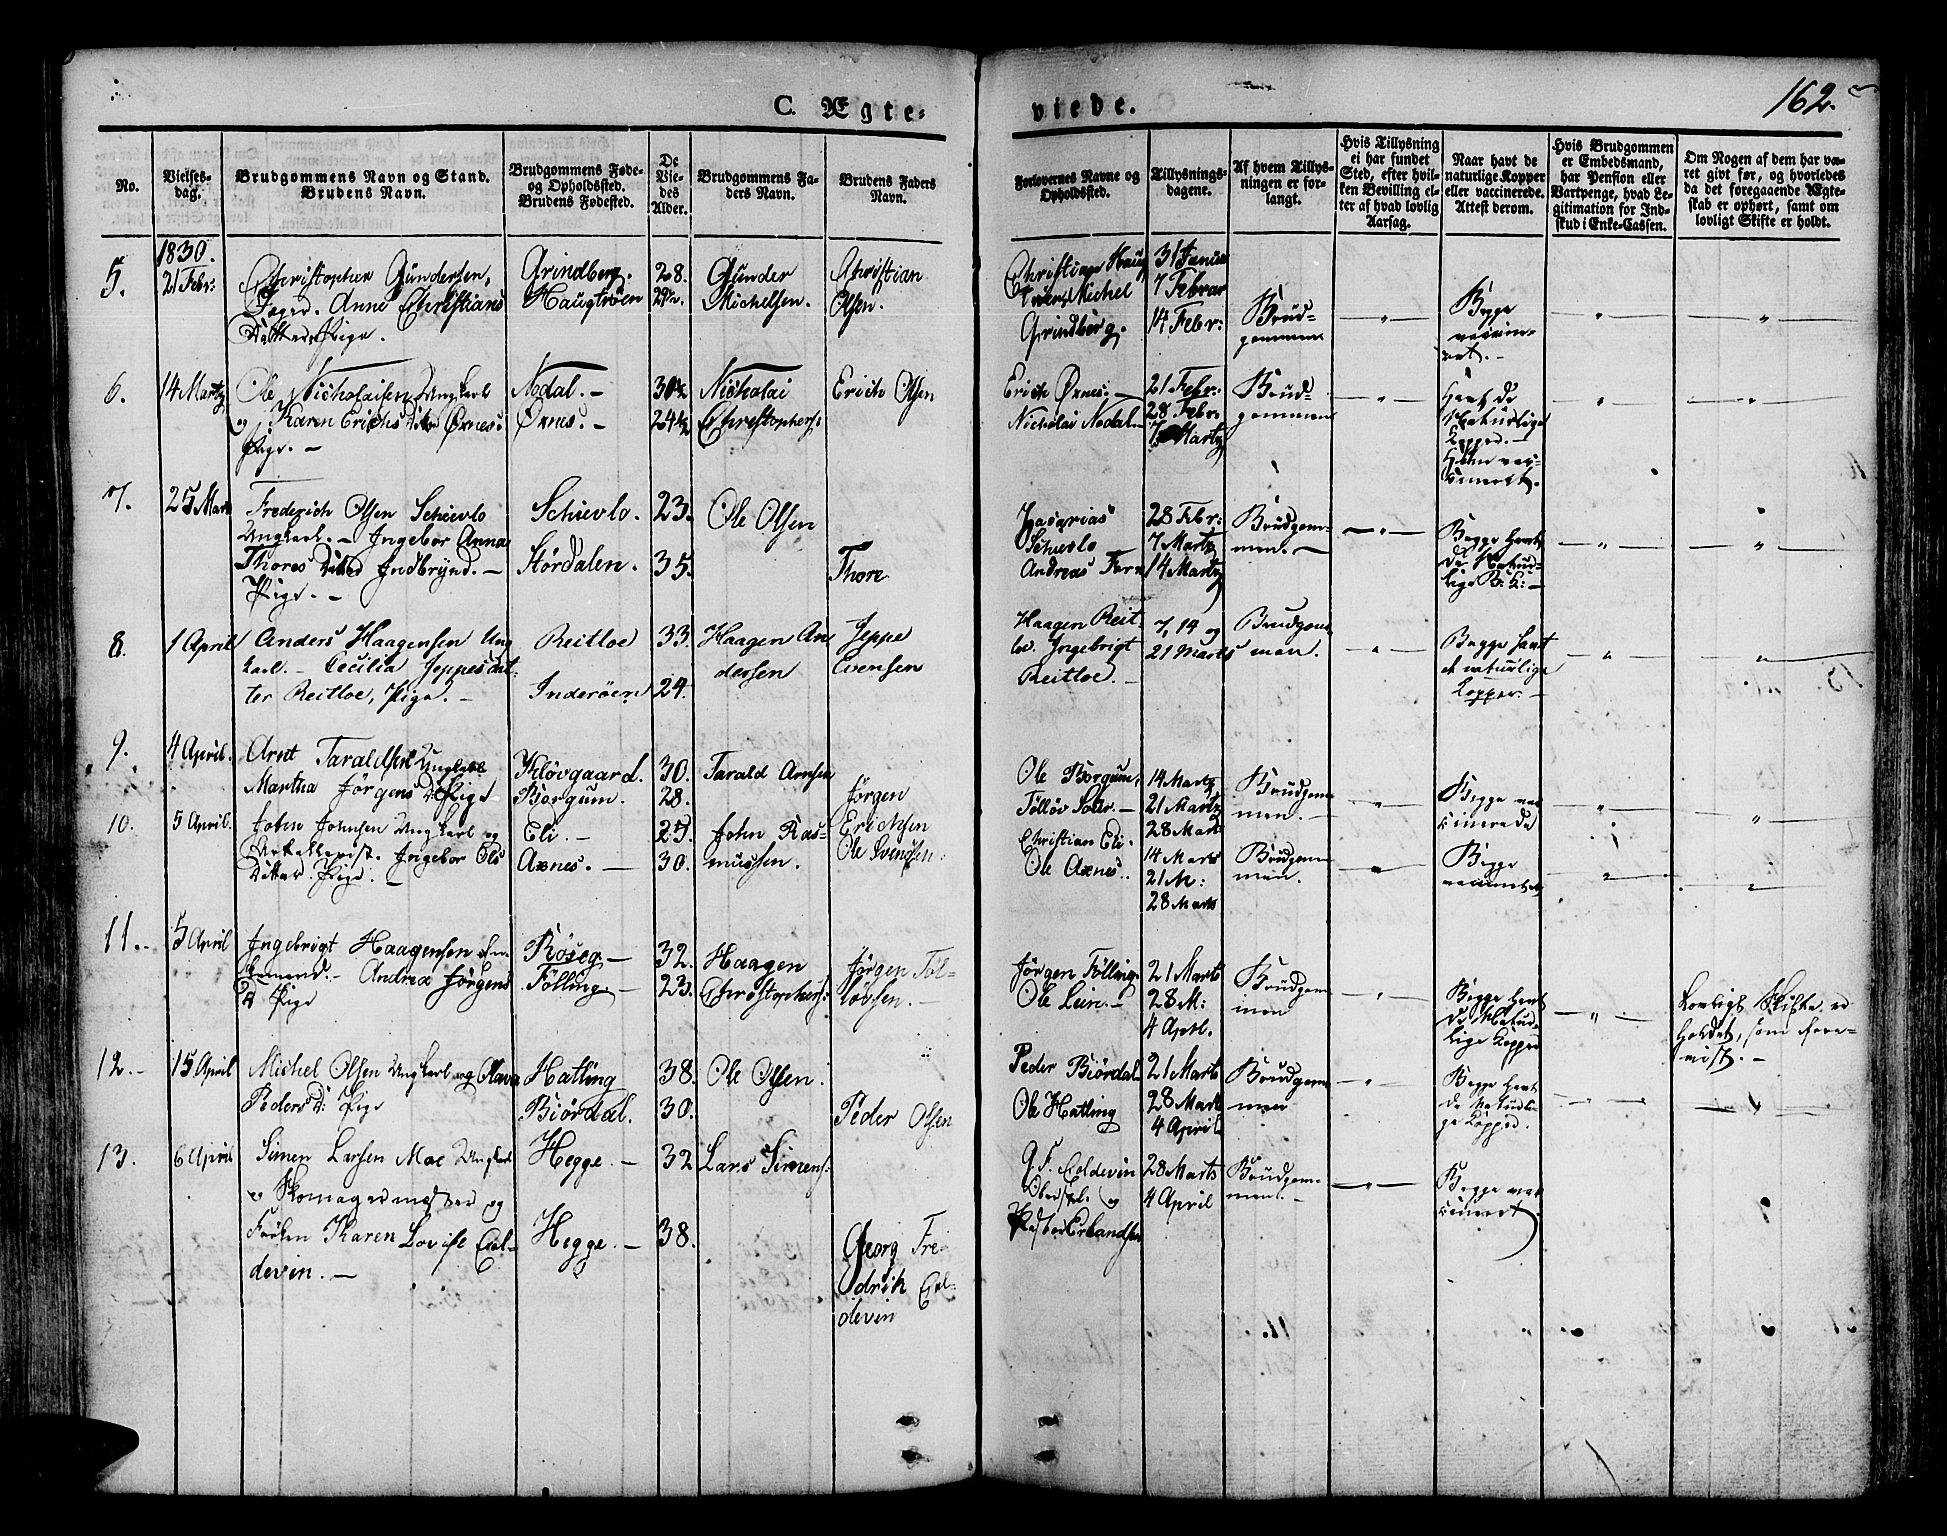 162.
C. Ægte-
viede.
No.
Vielses-
dag.
Brudgommens Navn og Stand.
Brudens Navn.
Brudgommens Føde-
og Opholdsted.
Brudens Fødested.
De
Vie-
des
Alder.
Brudgommens Fa-
ders Navn.
Brudens Faders
Navn.
Forlovernes Navne og
Opholdsted.
Tillysnings-
dagene.
Af hvem Tillys-
ningen er for-
langt.
Hvis Tillysning
ei har fundet
Sted, efter hvil-
ken Bevilling el-
ler af hvad lovlig
Aarsag.
Naar havt de
naturlige Kopper
eller vaccinerede.
Attest derom.
Hvis Brudgommen
er Embedsmand,
har Pension eller
Vartpenge, hvad Le-
gitimation for Ind-
skud i Enke-Cassen.
Om Nogen af dem har væ-
ret givt før, og hvorledes
da det foregaaende Ægte-
skab er ophørt, samt om
lovligt Skifte er holdt.
1830.
5.
21 Febr:
Christopher Gundersen,
Anne Christians
Datter Pige.
Grindberg.
Haugtröen
28.
Gunder
Michelsen.
Christian
Olsen.
Christian Haug
Michel
Grindberg.
31 Janua
7 Februar
14 Febr:
Brud-
gommen
Begge
vaccine-
ret.
6.
14 Martz
Ole Nicholaisen Ungkarl
og Karen Erichs Datter Öxnes:
Pige. -
Nödal. -
Öxnes. -
30½
24½
Nicholai
Christophers:
Erich Olsen
Erich Öxnes. -
Nicholai Nödal -
21 Febr:
28 Febr:
7 Martz
Brud-
gommen
Havt de
Naturlige
Kopper. -
7.
25 Marts
Frederich Olsen Schievlo
Ungkarl. - Ingebor Anna
Thores Datter Indbrynd. -
Pige. -
Schievlo.
Stördalen.
23.
35.
Ole Olsen
Thore
Zacarias
Schievlo
Andreas
28 Febr:
7 Martz
14 Martz
Brudgom-
men. -
Begge havt
de Natur-
lige B: K: -
8.
1 April
Anders Haagensen Ung
karl. - Cecilia Jeppesdat-
ter Reitloe, Pige. -
Reitloe
Inderöen
33.
24.
Haagen An
dersen
Jeppe
Evensen
Haagen Reit
loe. Ingebrigt
Reitloe. -
7, 14 og
21 Marts
Brudgom-
men.
Begge havt
de naturlige
Kopper. -
9.
4 April.
Arnt Taraldsen Ungkarl
Martha Jörgens D Pige
Klövgaard.
Borgum.
30.
28.
Tarald Arnsen
Jörgen
Erichsen
Ole Borgum,
Töllöv -
14 Martz
21 Martz
28 Mart
Brudgom-
men.
Begge vac
cinerede
10.
5 April.
John Johnsen Ungkarl og
Ingebor Ols
Datter Pige. -
Eli. -
Axnes. -
25.
30.
John Ras-
mussen.
Ole Svendsen.
Christian Eli.
Ole Axnes.
14 Marts
21 M:
28 Marts
Brudgom-
men.
Begge
vaccineret
11.
5 April
Ingebrigt Haagensen En-
kemand. - Andrea Jörgens
D Pige
Röseg -
Fölling. -
32.
23.
Haagen
Christophers:
Jörgen Töl-
löbsen. -
Jörgen Fölling.
Ole Lein. -
21 Marts
28 M:
4 Aprl.
Brudgom-
men
Begge havt
de Natur-
lige Kopper
Lovligt Skifte er
holdet, som bevi-
st. -
12.
15 April
Michel Olsen Ungkarl og Olava
Peders D: Pige
Hatling
Biördal.
38.
30.
Ole Olsen.
Peder Olsen
Peder Biördal
Ole Hatling
21 Marts
28 Mart
4 April
Brudgom-
men
Begge havt
de Naturli-
ge Kopper.
13.
6 April
Simen Larsen Moe Ungkarl
og Skomagermester og
Fröken Karen Lovise Col-
devin. -
Hegge. -
Hegge. -
32
38.
Lars Simens:
Georg Fre
drik Col-
devin
G. F. Coldevin
og
Erlandsen
28 Marts
4 April
Brudgom-
men. -
Begge vac
cineret.